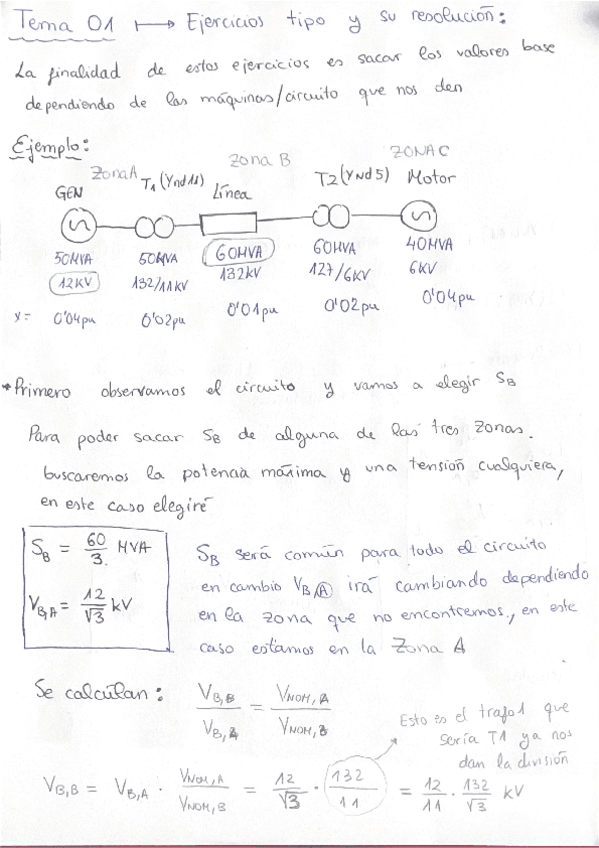 Tema 01 ⟼ Ejercicios tipo y su resolución:
La finalidad de estos ejercicios es sacar los valores base
dependiendo de las máquinas/circuito que nos den
Ejemplo:
Zona A Zona B ZONA C
GEN T1 (Ynd11) Línea T2 (YNd5) Motor
50MVA 60MVA 60MVA 60MVA 40MVA
12KV 132/11KV 132KV 127/6KV 6KV
x= 0'04pu 0'02pu 0'01pu 0'02pu 0'04pu
*Primero observamos el circuito y vamos a elegir SB
Para poder sacar SB de alguna de las tres zonas.
buscaremos la potencia máxima y una tensión cualquiera,
en este caso elegiré
SB = 60/3 MVA
VB,A = 12/√3 kV
SB será común para todo el circuito
en cambio VB,A irá cambiando dependiendo
en la zona que no encontremos, en este
caso estamos en la Zona A
Se calculan: VB,B/VB,A = VNOM,A/VNOM,B
Esto es el trafo1 que
sería T1 ya nos
dan la división
VB,B = VB,A · VNOM,A/VNOM,B = 12/√3 · 132/11 = 12/11 · 132/√3 kV